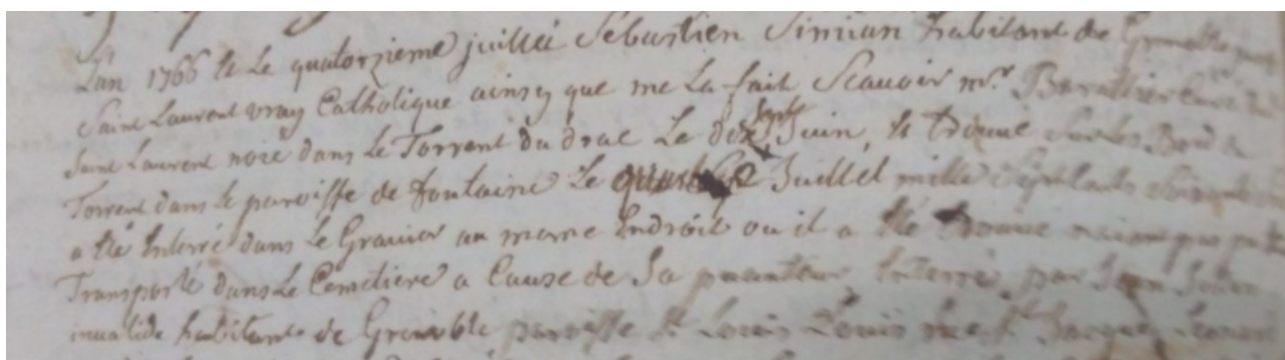 L'an 1766 & Le quatorzieme juillet Sebastien Simian habitant de Grenoble
Saint Laurent vray Catholique ainsy que me La fait Scavoir mr. Baratier Curé
Saint Laurent noié dans Le Torrent du drac Le dix sept Juin, & trouvé sur les Bord
Torrent dans le paroisse de fontaine Le Juillet mille Septcents soixante
a été Enterré dans Le Gravier au meme Endroit ou il a été trouvé pas
Transporté dans Le Cemetiere a Cause de Sa puanteur Enterré par Jean
invalide habitant de Grenoble paroisse St Louis Louis Jacques